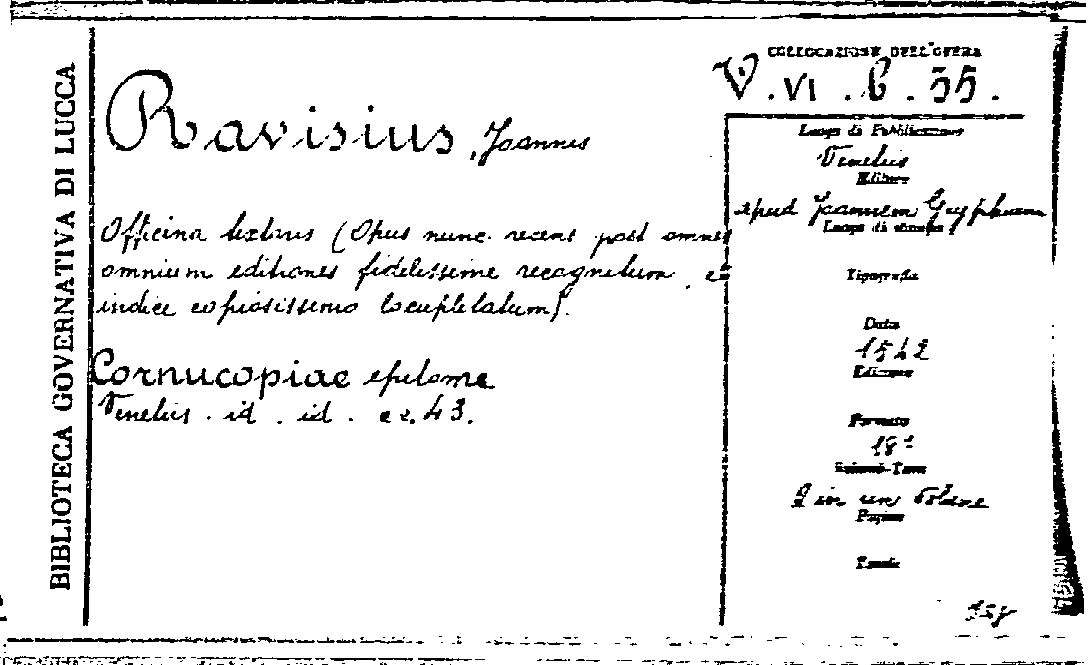 BIBLIOTECA GOVERNATIVA DI LUCCA
COLLOCAZIONE DELL'OPERA
V. VI. b. 55.
Ravisius, Joannes
Officina textoris (Opus nunc recens post omnes
omnium editiones fidelissime recognitum, et
indice copiosissimo locupletatum).
Cornucopiae epitome
Venetiis. id. id. cc. 43.
Luogo di Pubblicazione
Venetiis
Editore
apud Joannem Gryphium
Luogo di stampa
Tipografia
Data
1542
Edizione
Formato
18°
2 in un Volume
Pagine